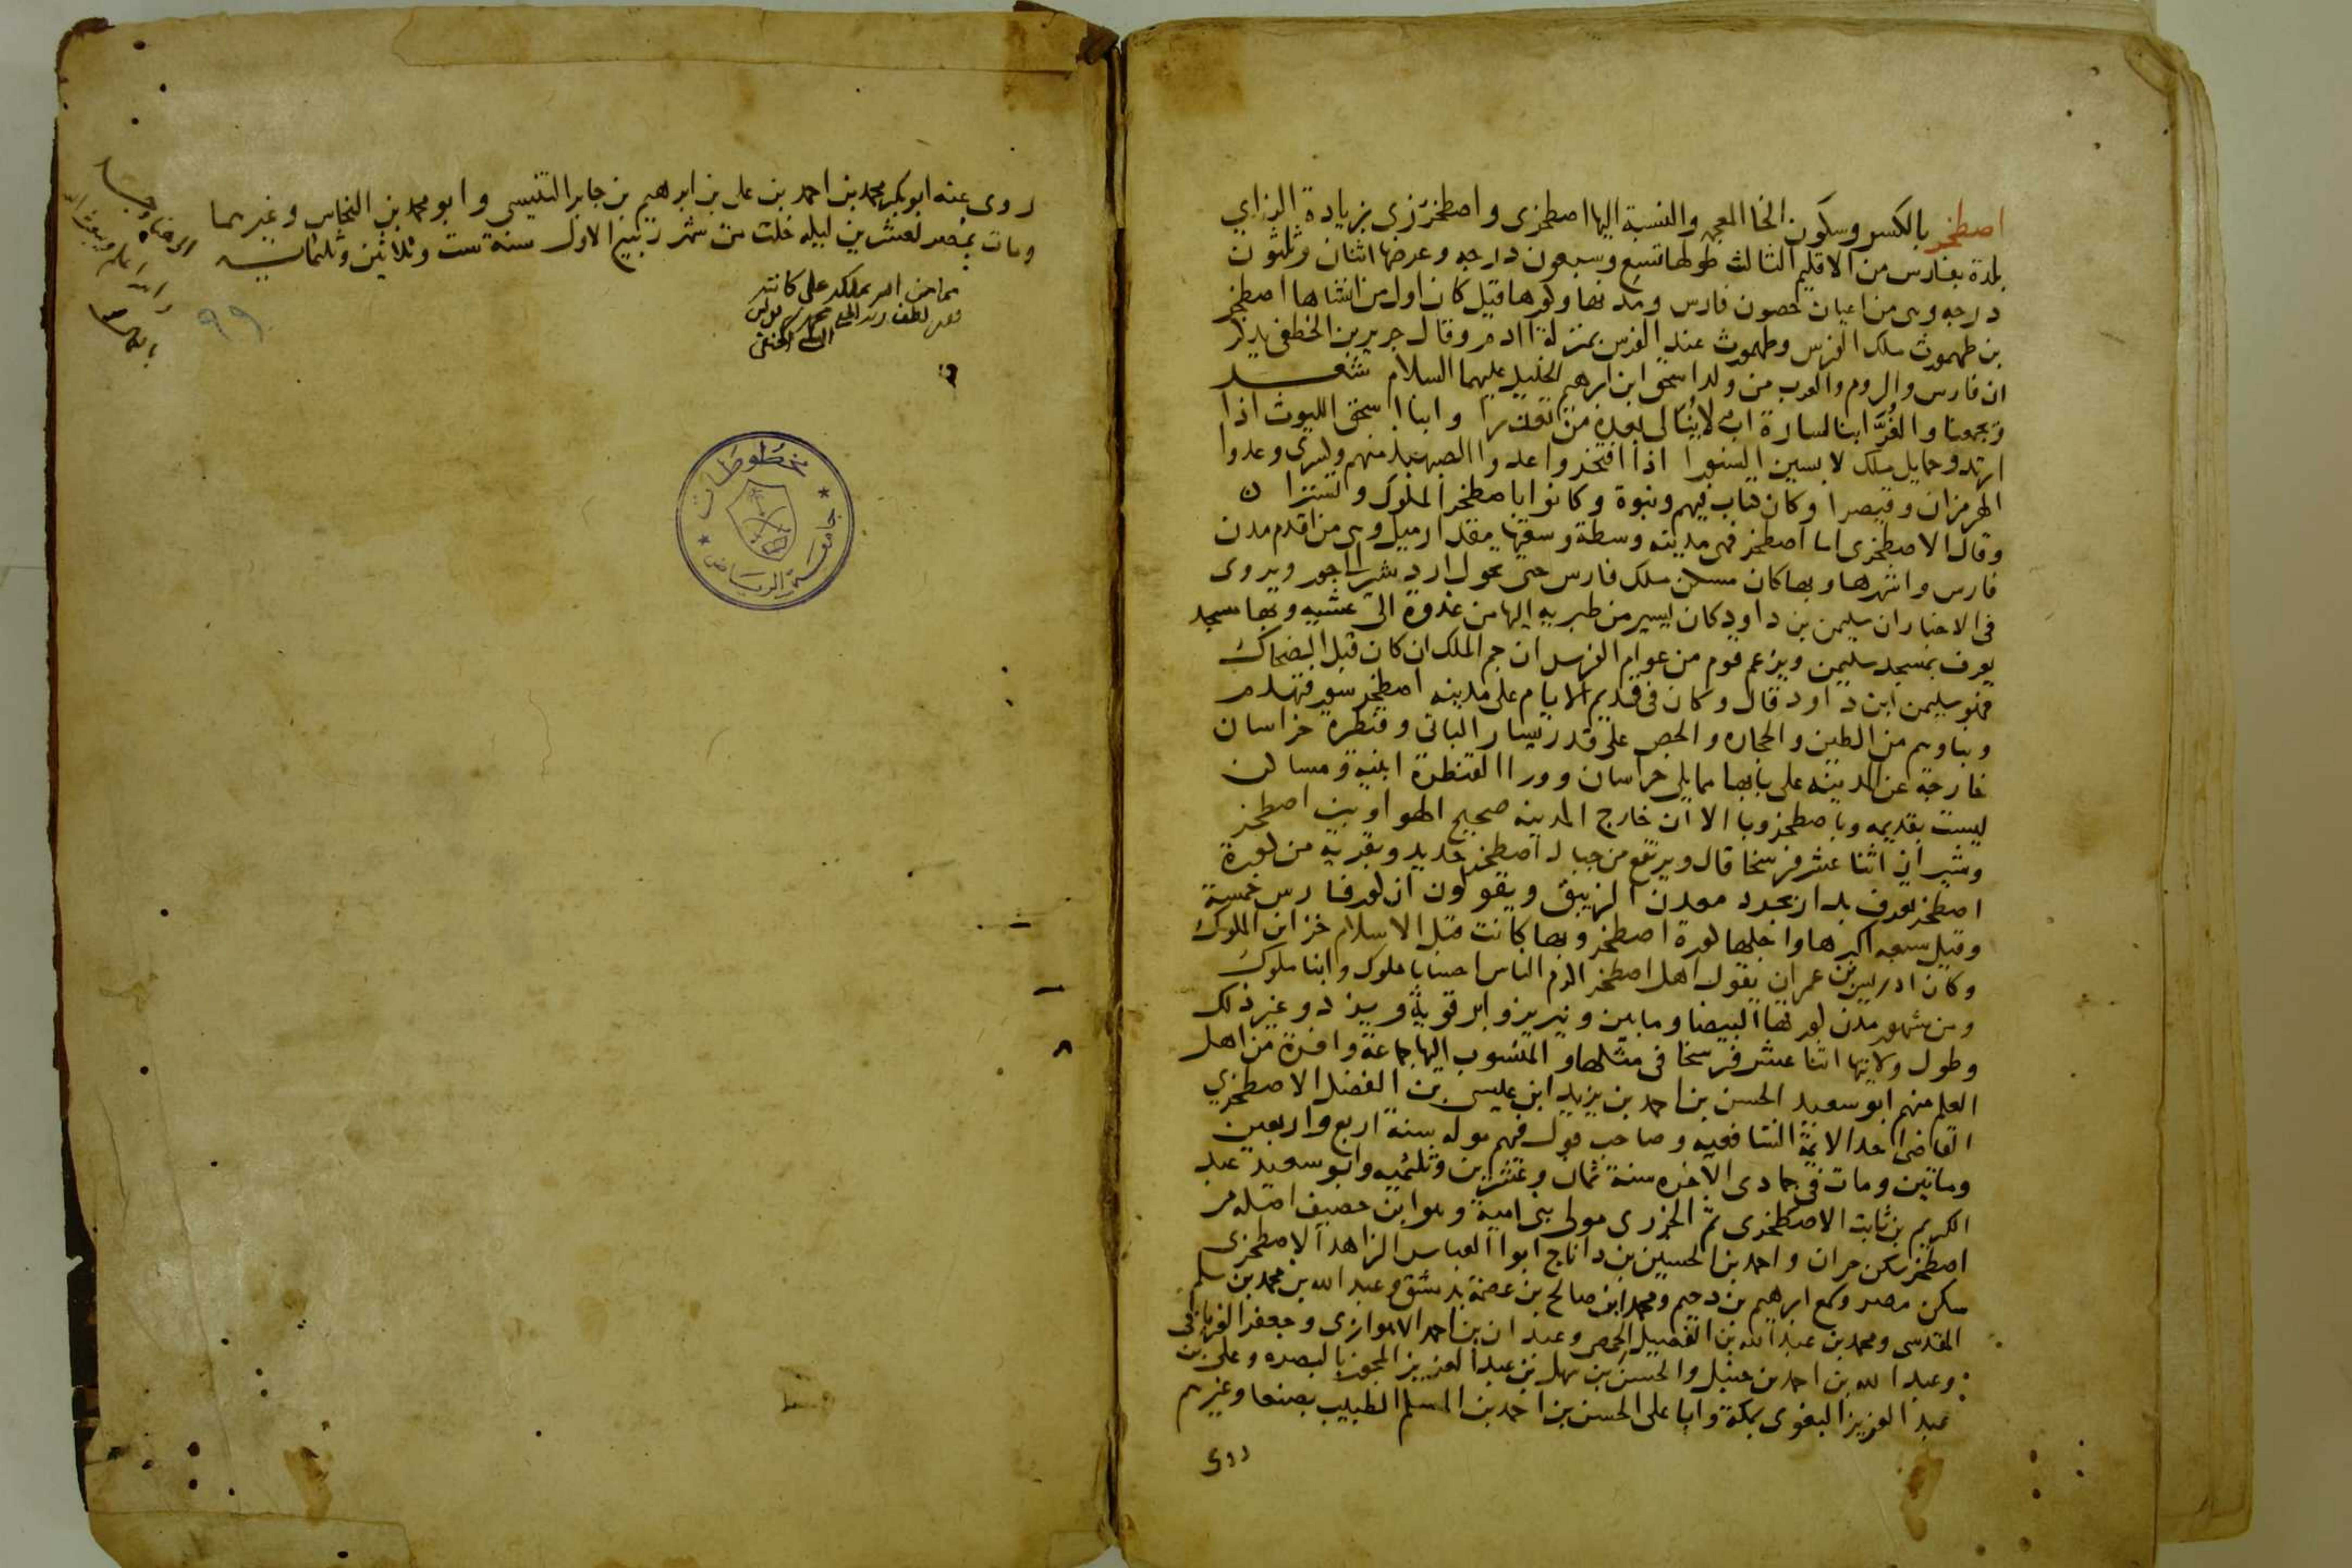 اصطخر بالكسر وسكون الخا المعجمه والنسبة اليها اصطخرى و اصطخرزى بزيادة الزاي
بلدة بفارس من الاقليم الثالث طولها تسع وسبعون درجه وعرضها اثنان وثلثون
درجه وهى من اعيان حصون فارس ومدنها وكورها قيل كان اول من انشاها اصطخر
بن طهمورث ملك الفرس وطهمورث عند الفرس بمنزلة ادم وقال جرير بن الخطفى يذكر
ان فارس والروم والعرب من ولد اسحق ابن ابرهيم الخليل عليهما السلام شعـــر
ويجمعنا والغُرَّ ابنا سارة اب لا يُبَالى بعده من تعذرا وابنا اسحق الليوث اذا
ارتدو حمايل ملك لابسين السنورا اذا افتخروا عدوا الصبهبذ منهم وكسرى وعدوا
الهرمزان وقيصرا وكان كتاب فيهم ونبوة وكانوا باصطخر الملوك وتسترا
وقال الاصطخرى اما اصطخر فهى مدينه وسطة وسعتها مقدار ميل وهى من اقدم مدن
فارس واشهرها وبها كان مسكن ملك فارس حتى تحول اردشير الى جور ويروى
فى الاخبار ان سليمن بن داود كان يسير من طبريه اليها من غدوة الى عشيه وبها مسجد
يعرف بمسجد سليمن ويزعم قوم من عوام الفرس ان جم الملك ان كان قبل الضحاك
فهو سليمن ابن داود قال وكان فى قديم الايام على مدينه اصطخر سور فتهدم
وبناوهم من الطين والحجاره والجص على قدر يسار البانى وقنطرة خراسان
خارجة عن المدينه على بابها مما يلى خراسان وورا القنطرة ابنيه ومساكن
ليست بقديمه وباصطخر وبا الا ان خارج المدينه صحيح الهوا وبين اصطخر
وشيراز اثنا عشر فرسخا قال ويرتفع من جبال اصطخر حديد وبقريه من كورة
اصطخر تعرف بدارابجرد معدن الزيبق ويقولون ان كور فارس خمسة
وقيل سبعه اكبرها واجلها كورة اصطخر وبها كانت قبل الاسلام خزاين الملوك
وكان ادريس بن عمران يقول اهل اصطخر اكرم الناس احسابا ملوك وابنا ملوك
ومن مشهور مدن كورتها البيضا ومايين ونيريز وابرقوية ويزد وغير ذلك
وطول ولايتها اثنا عشر فرسخا فى مثلها والمنسوب اليها جماعة وافرة من اهل
العلم منهم ابو سعيد الحسن بن احمد بن يزيد ابن عيسى بن الفضل الاصطخري
القاضى احد الائمة الشافعيه وصاحب قول فيهم مولده سنة اربع واربعين
وماتين ومات فى جمادى الاخره سنة ثمان وعشرين وثلثميه وابو سعيد عبد
الكريم بن ثابت الاصطخرى ثم الجزرى مولى بنى امية وهو ابن خصيف اصله من
اصطخر سكن حران واحمد بن الحسين بن داناج ابو العباس الزاهد الاصطخرى
سكن مصر وسمع ابرهيم بن دحيم ومحمد ابن صالح بن عصمة بدمشق وعبد الله بن محمد بن سلم
المقدسى ومحمد بن عبد الله بن الفضيل الحمصى وعبدان بن احمد الاهوازى وجعفر الفريابى
وعبد الله بن احمد بن حنبل والحسن بن سهل بن عبد العزيز المجوز بالبصره وعلى بن
عبد العزيز البغوى بمكة وابا على الحسن بن احمد بن المسلم الطبيب بصنعا وغيرهم
روى
روى عنه ابو بكر محمد بن احمد بن على بن ابرهيم بن جابر التنيسى وابو محمد بن النحاس وغيرهما
ومات بمصر لعشرين ليله خلت من شهر ربيع الاول سنة ست وثلاثين وثلثمايـــه
٩٩
مخطوطات
جامعة الرياض